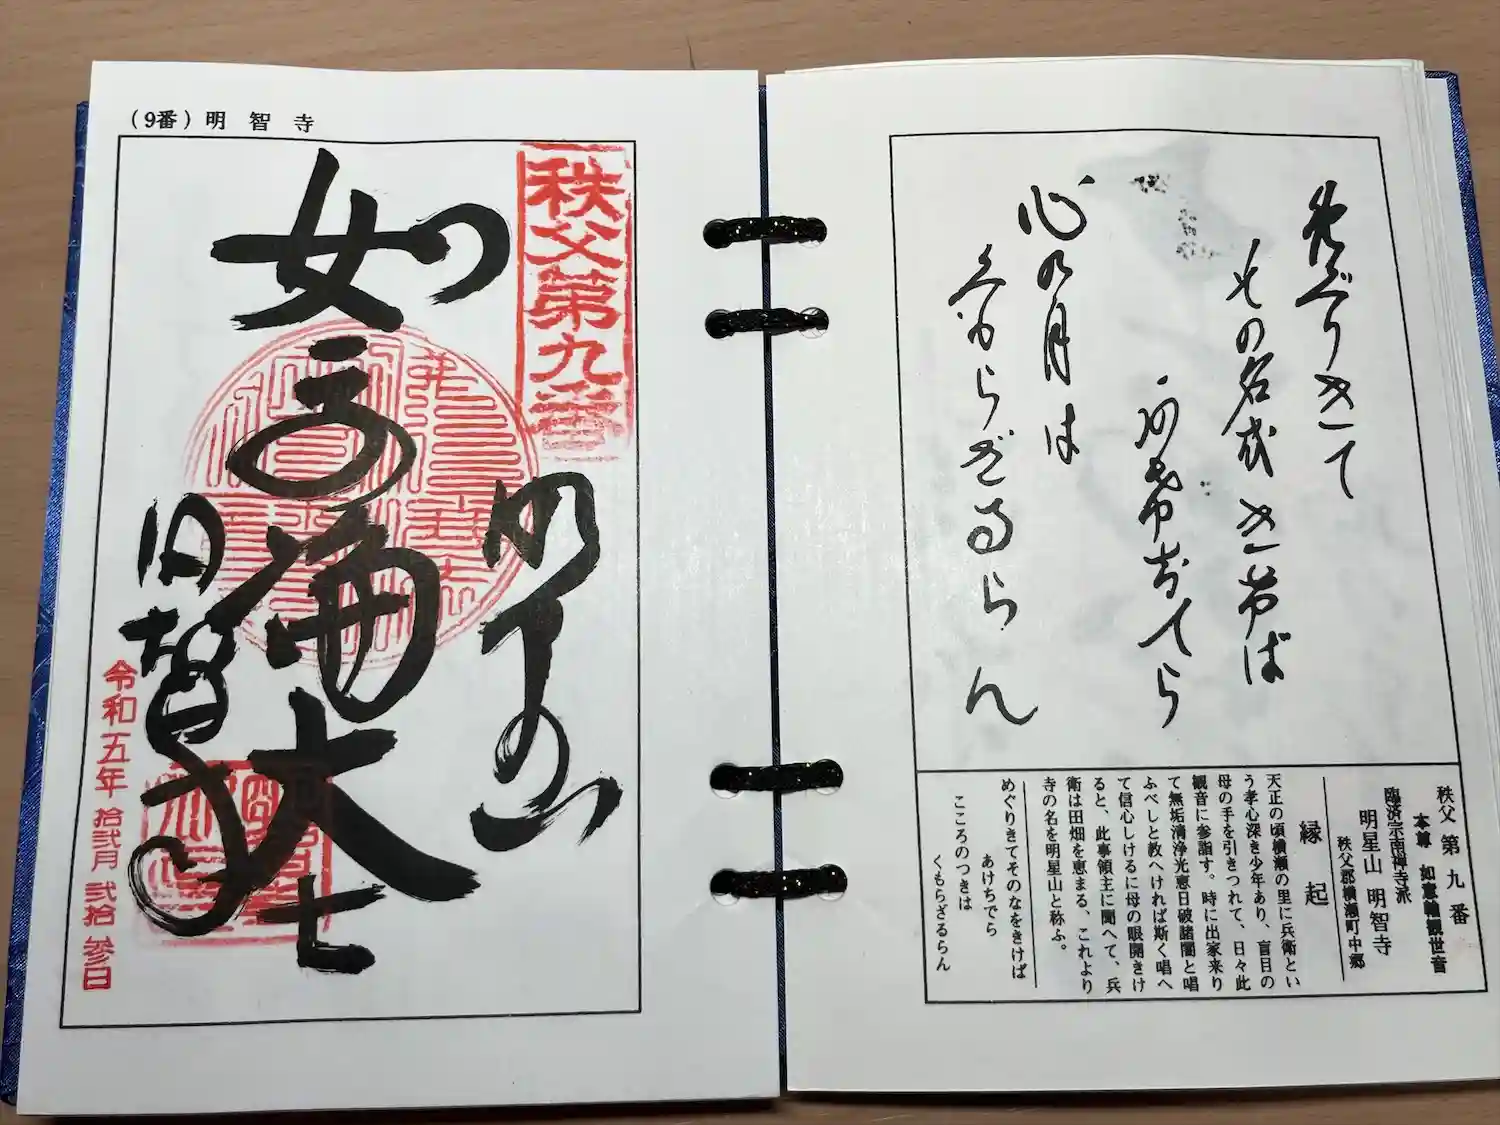 (9番)明智寺
秩父第九番
明星山
如意輪大士
明智寺
令和五年拾弐月弐拾参日
めぐりきて
その名をきけば
あけちでら
心の月は
くもらざるらん
秩父第九番
本尊 如意輪観世音
臨済宗南禅寺派
明星山 明智寺
秩父郡横瀬町中郷
縁起
天正の頃横瀬の里に兵衛とい
う孝心深き少年あり、盲目の
母の手を引きつれて、日々此
観音に参詣す。時に出家来り
て無垢清浄光恵日破諸闇と唱
ふべしと教へければ斯く唱へ
て信心しけるに母の眼開きけ
ると、此事領主に聞へて、兵
衛は田畑を恵まる、これより
寺の名を明星山と称ふ。
めぐりきてそのなをきけば
あけちでら
こころのつきは
くもらざるらん